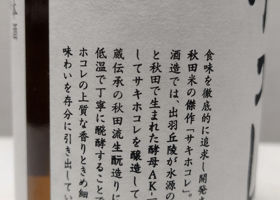 食味を徹底的に追求し開発さ
秋田米の傑作「サキホコレ」。
酒造では、出羽丘陵が水源の
と秋田で生まれた酵母AK-
してサキホコレを醸造して
蔵伝承の秋田流生酛造りに
低温で丁寧に醗酵することで
ホコレの上質な香りときめ細
味わいを存分に引き出してい